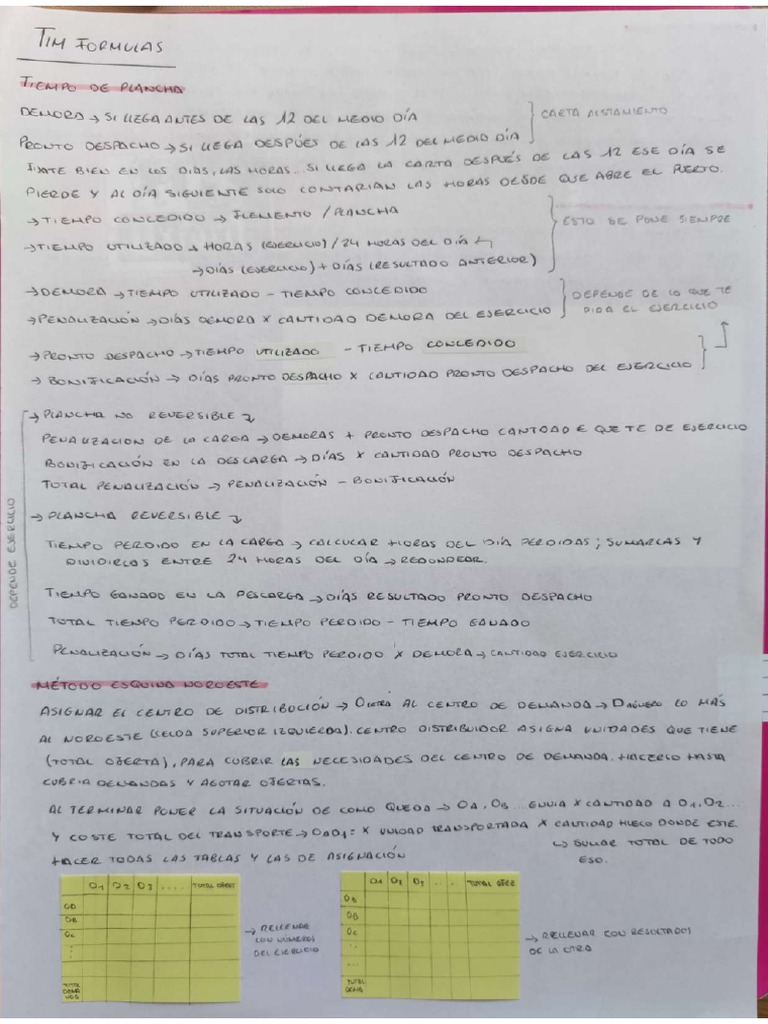 TIM FORMULAS
TIEMPO DE PLANCHA
DEMORA → SI LLEGA ANTES DE LAS 12 DEL MEDIO DÍA
CARTA ALISTAMIENTO
PRONTO DESPACHO → SI LLEGA DESPÚES DE LAS 12 DEL MEDIO DÍA
FIJATE BIEN EN LOS DIAS, LAS HORAS... SI LLEGA LA CARTA DESPUÉS DE LAS 12 ESE DÍA SE
PIERDE Y AL DÍA SIGUIENTE SOLO CONTARIAN LAS HORAS DESDE QUE ABRE EL PUERTO.
→ TIEMPO CONCEDIDO → FLEMENTO / PLANCHA
ESTO SE PONE SIEMPRE
→ TIEMPO UTILIZADO → HORAS (EJERCICIO) / 24 HORAS DEL DÍA
→ DÍAS (EJERCICIO) + DÍAS (RESULTADO ANTERIOR)
→ DEMORA → TIEMPO UTILIZADO - TIEMPO CONCEDIDO
DEPENDE DE LO QUE TE
→ PENALIZACIÓN → DÍAS DEMORA X CANTIDAD DEMORA DEL EJERCICIO
PIDA EL EJERCICIO
→ PRONTO DESPACHO → TIEMPO UTILIZADO - TIEMPO CONCEDIDO
→ BONIFICACIÓN → DÍAS PRONTO DESPACHO X CANTIDAD PRONTO DESPACHO DEL EJERCICIO
DEPENDE EJERCICIO
→ PLANCHA NO REVERSIBLE
PENALIZACION DE LA CARGA → DEMORAS + PRONTO DESPACHO CANTDAD E QUE TE DE EJERCICIO
BONIFICACIÓN EN LA DESCARGA → DÍAS X CANTIDAD PRONTO DESPACHO
TOTAL PENALIZACIÓN → PENALIZACIÓN - BONIFICACIÓN
→ PLANCHA REVERSIBLE
TIEMPO PERDIDO EN LA CARGA → CALCULAR HORAS DEL DÍA PERDIDAS; SUMARLAS Y
DIVIDIRLOS ENTRE 24 HORAS DEL DÍA → REDONDEAR.
TIEMPO GANADO EN LA DESCARGA → DÍAS RESULTADO PRONTO DESPACHO
TOTAL TIEMPO PERDIDO → TIEMPO PERDIDO - TIEMPO GANADO
PENALIZACIÓN → DÍAS TOTAL TIEMPO PERDIDO X DEMORA → CANTIDAD EJERCICIO
MÉTODO ESQUINA NOROESTE
ASIGNAR EL CENTRO DE DISTRIBUCIÓN → O LETRA AL CENTRO DE DEMANDA → D NÚMERO LO MÁS
AL NOROESTE (CELDA SUPERIOR IZQUIERDA). CENTRO DISTRIBUIDOR ASIGNA UNIDADES QUE TIENE
(TOTAL OFERTA), PARA CUBRIR LAS NECESIDADES DEL CENTRO DE DEMANDA. HACERLO HASTA
CUBRIR DEMANDAS Y AGOTAR OFERTAS.
AL TERMINAR PONER LA SITUACIÓN DE COMO QUEDA → OA, OB... ENVIA X CANTIDAD A D1, D2...
Y COSTE TOTAL DEL TRANSPORTE → OAD1 = X UNIDAD TRANSPORTADA X CANTIDAD HUECO DONDE ESTE
HACER TODAS LAS TABLAS Y LAS DE ASIGNACIÓN
↳ SUMAR TOTAL DE TODO
ESO.
D1 D2 D3 .... TOTAL OFERT
OB
OC
TOTAL DEMANDAS
→ RELLENAR
CON NÚMEROS
DEL EJERCICIO
D1 D2 D3 .. . TOTAL OFER
OB
OC
TOTAL
DEMA
→ RELLENAR CON RESULTADOS
DE LA OTRA